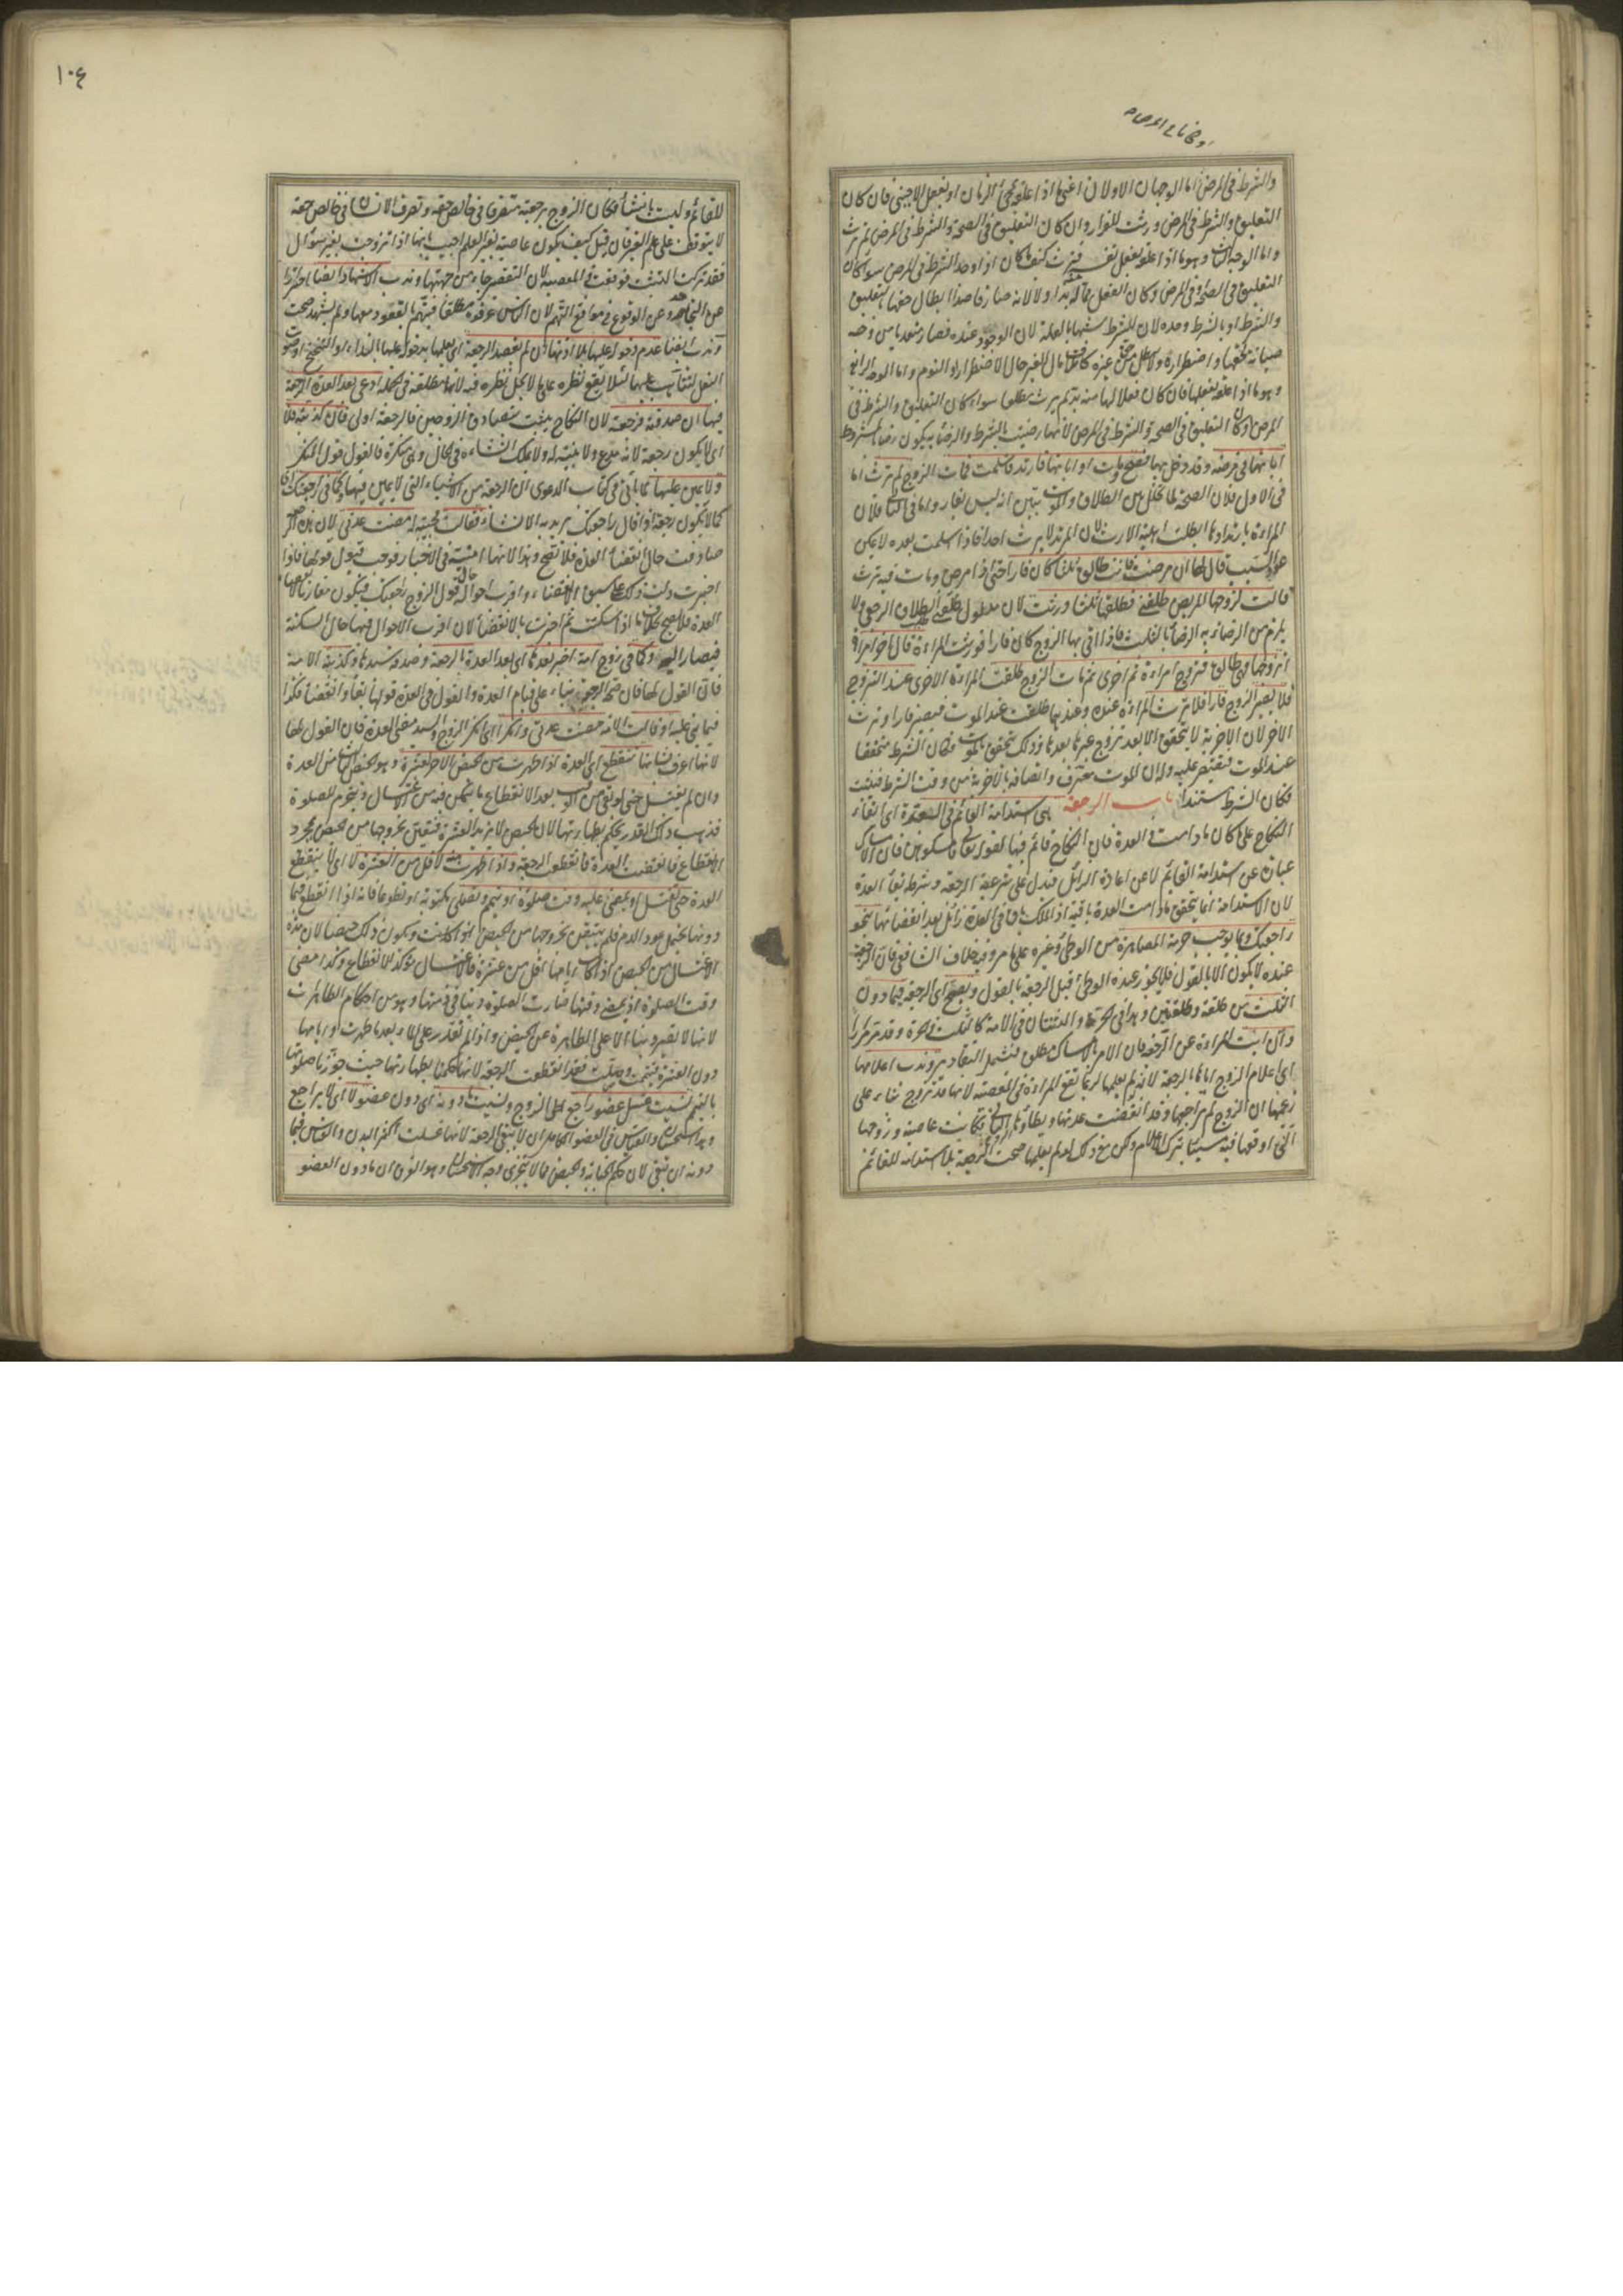 والشرط فى المرض اما الوجهان الاولان اعنى ما اذا علقه بمجئ الزمان او بفعل الاجنبى فان كان
التعليق والشرط فى المرض ورثت للفرار وان كان التعليق فى الصحة والشرط فى المرض لم ترث
واما الوجه الثالث وهو ما اذا علقه بفعل نفسه فترث كيف ما كان اذا وجد الشرط فى المرض سواء كان
التعليق فى الصحة او فى المرض وكان الفعل مما له منه بد اولا لانه صار قاصدا ابطال حقها بتعليق
والشرط او بالشرط وحده لان للشرط شبها بالعلة لان الوجود عنده فصار متعديا من وجه
صيانة لحقها واضطراره لا يبطل حق غيره كاتلاف مال الغير حال الاضطرار او النوم واما الوجه الرابع
وهو ما اذا علقه بفعلها فان كان فعلا لها منه بد لم ترث مطلقا سواء كان التعليق والشرط فى
المرض او كان التعليق فى الصحة والشرط فى المرض لانها رضيت بالشرط والرضا به يكون رضا بالمشروط
ابانها فى مرضه وقد دخل بها فصح ومات او ابانها فارتدت فاسلمت فمات الزوج لم ترث اما
فى الاول فلان الصحة لما تخلل بين الطلاق والموت تبين انه ليس بفار واما فى الثانى فلان
المرأة بارتدادها ابطلت اهلية الارث لان المرتد لا يرث احدا فاذا اسلمت بعده لا يمكن
عود السبب قال لها ان مرضت فانت طالق ثلثا كان فارا حتى اذا مرض ومات فيه ترث
قالت لزوجها المريض طلقنى فطلقها ثلثا ورثت لان مدلول طلقنى طلب الطلاق الرجعى ولا
يلزم من الرضاء به الرضا بالثلث فاذا اتى بها الزوج كان فارا فورثت المراءة قال آخر امرأة
اتزوجها فهى طالق فتزوج امراءة ثم اخرى ثم مات الزوج طلقت المراءة الاخرى عند التزوج
فلا يصير الزوج فارا فلا ترث المراءة عنده وعندهما طلقت عند الموت فيصير فارا وترث
الاخر لان الاخرية لا يتحقق الا بعد تزوج غيرها بعدها وذلك يتحقق بالموت فكان الشرط متحققا
عند الموت فيقتصر عليه وله ان الموت معرف واتصافه بالاخرية من وقت الشرط فيثبت
فكان الشرط مستندا باب الرجعة هى استدامة القائم فى العدة اى ابقاء
النكاح على ما كان ما دامت فى العدة فان النكاح قائم فيها لقوله تعالى فامسكوهن فان الامساك
عبارة عن استدامة القائم لا عن اعادة الزائل فيدل على شرعية الرجعة وشرطه بقاء العدة
لان الاستدامة انما يتحقق ما دامت العدة باقية اذ الملك باق فى العدة زائل بعد انقضائها بنحو
راجعتك وبما يوجب حرمة المصاهرة من الوطئ وغيره على ما مر وفيه خلاف الشافعى فان الرجعة
عنده لا يكون الا بالقول فلا يجوز عنده الوطئ قبل الرجعة بالقول ويصح اى الرجعة فيما دون
الثلث من طلقة وطلقتين وهذا فى الحرة والثنتان فى الامة كالثلث فى الحرة وقد مر مرارا
وان ابت المراءة عن الرجعة فان الامر بالامساك مطلق فيشمل التقادير وندب اعلامها
اى اعلام الزوج اياها بالرجعة لانه لو لم يعلمها لربما تقع المراءة فى المعصية لانها قد تزوج بناء على
زعمها ان الزوج لم يراجعها وقد انقضت عدتها ويطأها الزوج الثانى فكانت عاصية وزوجها
الذى اوقعها فيه مسيئا بترك الاعلام ولكن مع ذلك لو لم يعلمها صحت الرجعة بلا استدامة للقائم
١٠٤
للقائم وليست بانشاء فكان الزوج برجعته متصرفا فى خالص حقه وتصرف الانسان فى خالص حقه
لا يتوقف على علم الغير فان قيل كيف يكون عاصية بغير العلم اجيب بانها اذا تزوجت بغير سؤال
فقد تركت التثبت فوقعت فى المعصية لان التقصير جاء من جهتها وندب الاشهاد ايضا احترازا
عن التجاحد وعن الوقوع فى مواقع التهم لان الناس عرفوه مطلقا فيتهم بالقعود معها ولم يشهد صحت
وندب ايضا عدم دخوله عليها بلا اذنها ان لم يقصد الرجعة اى يعلمها بدخوله عليها بالنداء او التنحنح او صوت
النعل لتتأهب عليها لئلا يقع نظره على ما لا يحل نظره فيه لانها مطلقة فى الجملة ادعى بعد العدة الرجعة
فيها ان صدقته فرجعة لان النكاح يثبت بتصادق الزوجين فالرجعة اولى فان كذبته فلا
اى لا يكون رجعة لانه مدع ولا بينة له ولا يملك انشاءه فى الحال وهى منكرة فالقول قول المنكر
ولا يمين عليها لما يأتى فى كتاب الدعوى ان الرجعة من الاشياء التى لا يمين فيها كما فى راجعتك
كما لا يكون رجعة اذا قال راجعتك يريد به الانشاء فقالت مجيبة له مضت عدتى لان هذا
صادفت حال انقضاء العدة فلا تصح وهذا لانها امينة فى الاخبار فوجب قبول قولها فاذا
اخبرت دل ذلك على سبق الانقضاء واقرب احواله حال قول الزوج راجعتك فيكون مقارنا لانقضاء
العدة فلا يصح بخلاف ما اذا سكتت ثم اخبرت بالانقضاء لان اقرب الاحوال فيها حال السكتة
فيصار اليه وكما فى زوج امة اخبر بعدها اى بعد العدة بالرجعة وصدقه سيدها وكذبته الامة
فان القول لها فان صحة الرجعة بناء على قيام العدة والقول فى العدة قولها بقاء وانقضاء فكذا
فيما بنى عليه او قالت الامة مضت عدتى وانكرا اى انكر الزوج والسيد مضى العدة فان القول لها
لانها اعرف بشانها تنقطع اى العدة اذا طهرت من حيض الآخر لعشرة وهو الحيض الثالث من العدة
وان لم يغتسل حتى لو بقى من الوقت بعد الانقطاع ما يتمكن فيه من الاغتسال وتحرم للصلوة
فذهب ذلك القدر يحكم بطهارتها لان الحيض لا يزيد العشرة فتيقن بخروجها من الحيض بمجرد
الانقطاع فانقضت العدة فانقطعت الرجعة واذا طهرت منه لاقل من العشرة لا اى لا ينقطع
العدة حتى تغتسل او يمضى عليها وقت صلوة او تتيمم وتصلى مكتوبة او تطوعا فانه اذا انقطع فيما
دونها يحتمل عود الدم فلم يتيقن بخروجها من الحيض
الاغتسال من الحيض اذا كان ايامها اقل من عشرة فالاغتسال مؤكد للانقطاع وكذا مضى
وقت الصلوة اذ بمضى وقتها صارت الصلوة دينا فى ذمتها وهو من احكام الطاهرات
لانها لا تصير دينا الا على الطاهرة عن الحيض
دون العشرة فتيممت وصلت فقد انقطعت الرجعة لانها حكمنا بطهارتها حيث جوزنا صلوتها
بالتيمم نسيت غسل عضو راجع اى الزوج ولو نسيت ما دونه اى دون عضو لا اى لا يراجع
وهذا استحسان والقياس فى العضو الكامل ان لا تبقى الرجعة لانها غسلت اكثر البدن والقياس فيما
دونه ان تبقى لان حكم الجنابة والحيض مما لا يتجزى وجه الاستحسان وهو الفرق ان ما دون العضو